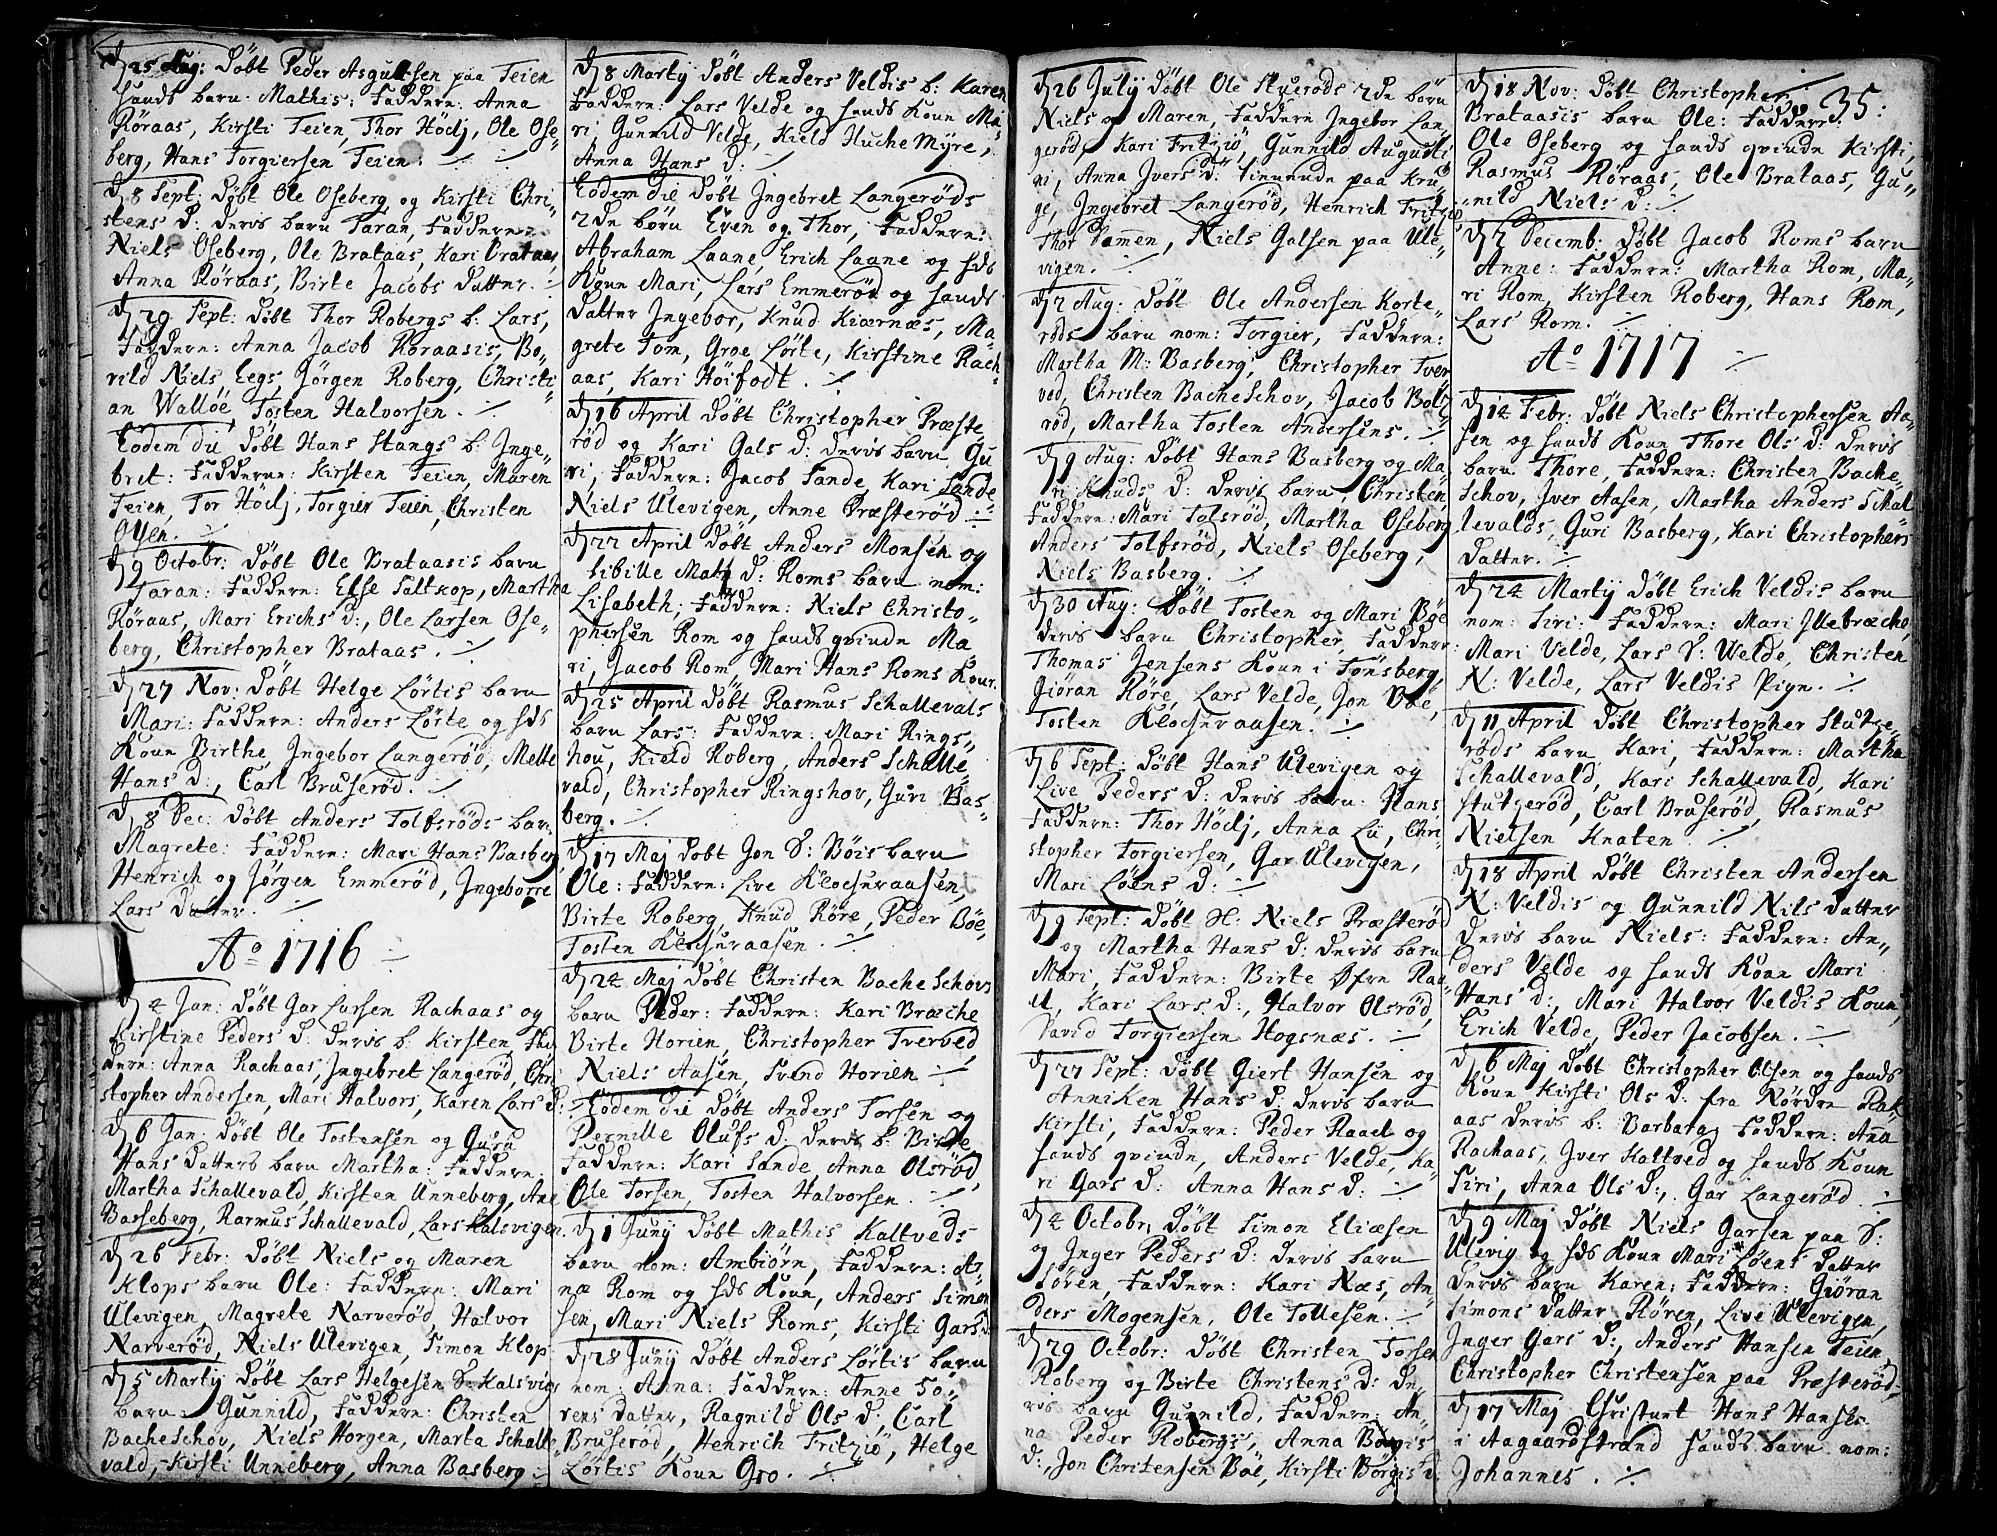 d 25 Aug: døbt Peder Asgultsen paa Teien
hands barn Mathis: Faddere: Anna
Röraas, Kirsti Teien, Thor Hödj, Ole Ose-
berg, Hans Torgiersen Teien.
d 8 Sept: døbt Ole Oseberg og Kirsti Chri-
stens d: deris barn Taran, Faddere:
Niels Oseberg, Ole Brataas, Kari Brataas,
Anna Röraas, Birte Jacobs datter.
d 29 Sept: døbt Thor Robergs b: Lars,
Faddere: Anna Jacob Röraasis, Bo-
rild Niels, Eegs, Jörgen Roberg, Christi-
an Walløe, Tosten Halvorsen.
Eodem die døbt Hans Stangs b: Inge-
bret: Faddere: Kirsten Teien, Maren
Teien, Tor Hödj, Torgier Teien, Christen
Olsen.
d 9 Octobr: døbt Ole Brataasis barn
Taran: Faddere: Else Saltkop, Martha
Röraas, Mari Erichs d:, Ole Larsen Ose-
berg, Christopher Brataas.
d 27 Nov: døbt Helge Lörtis barn
Mari: Faddere: Anders Lörte og hds
Koun Birthe, Ingebor Langeröd, Mette
Hans d:, Carl Bruseröd.
d 8 Dec: døbt Anders Tolfsröds barn
Magrete: Faddere: Mari Hans Basberg
Henrich og Jörgen Emmeröd, Ingeborre
Lars datter.
Ao 1716
d 4 Jan: døbt Gar Larsen Rachaas og
Kirstine Peders d: deris b: Kirsten Fad-
dere: Anna Rachaas, Ingebret Langeröd, Chri-
stopher Andersen, Mari Halvors, Karen Lars d:
d 6 Jan: døbt Ole Tostensen og Guru
Hans datters barn Martha: Faddere:
Martha Schallevald, Kirsten Unneberg, Ane
Basseberg, Rasmus Schallevald, Lars Kalsvigen.
d 26 Febr: døbt Niels og Maren
Klops barn Ole: Faddere: Mari
Ulevigen, Magrete Narveröd, Halvor
Narveröd, Niels Ulevigen, Simon Klop
d 5 Martij døbt Lars Helgesen S: Kalsvigs
barn: Gunnild, Faddere: Christen
Bache Schov, Niels Horgen, Marta Schalle-
vald, Kirsti Unneberg, Anna Basberg.
d 8 Martij døbt Anders Veldis b: Karen
Faddere: Lars Velde og hands Koun Ma-
ri, Gunnild Velde, Kield Huche Myre,
Anna Hans d:
Eodem die døbt Ingebret Langeröds
2de börn Even og Thor, Faddere:
Abraham Laane, Erich Laane og hds
Koun Mari, Lars Emmeröd og hands
datter Ingebor, Knud Kiærnæs, Ma-
grete Tom, Groe Lörte, Kirstine Rach-
aas, Kari Höifodt.
d 16 April døbt Christopher Præste
röd og Kari Gals d: deris barn Gu
ri, Faddere: Jacob Sande, Kari Sande
Niels Ulevigen, Anne Præsteröd
d 22 April døbt Anders Monsen og
Sibille Mats d: Roms barn nom:
Lisabeth; Faddere: Niels Christo-
phersen Rom og hands qvinde Ma
ri, Jacob Rom, Mari Hans Roms Koun.
d 25 April døbt Rasmus Schallevals
barn Lars: Faddere: Mari Rings-
hou, Kield Roberg, Anders Schalle-
vald, Christopher Ringshov, Guri Bas-
berg.
d 17 Maj døbt Jon S: Böis barn
Ole: Faddere: Live Klocheraasen,
Birte Roberg, Knud Röre, Peder Böe,
Tosten Klocheraasen.
d 24 Maj døbt Christen Bache Schovs
barn Peder: Faddere: Kari Bræche
Birte Horien, Christopher Tverved,
Niels Aasen, Svend Horien
Eodem die døbt Anders Torsen og
Pernille Olufs d: deris b: Birte
Faddere: Kari Sande, Anna Olsröd,
Ole Torsen, Tosten Halvorsen.
d 1 Juny døbt Mathis Kaltveds
barn nom: Ambiörn, Faddere: Ar-
ne Rom og hds Koun, Anders Simon
sen, Mari Niels Roms, Kirsti Gars d:
d 28 Juny døbt Anders Lörtis barn
nom: Anna: Faddere: Anne Sö-
rens datter, Ragnild Ols d: Carl
Bruseröd, Henrich Fritziö, Helge
Lörtis Koun Gro.
d 26 July døbt Ole Hueröds 2de börn
Niels og Maren, Faddere Ingebor Lan-
geröd, Kari Fritzjö, Gunnild Augusti
ni, Anna Jvers d: tienende paa Kru-
ge, Ingebret Langeröd, Henrich Fritzjö
Thor Sannen, Niels Galsen paa Ule-
vigen.
d 2 Aug: døbt Ole Andersen Korte-
röds barn nom: Torgier, Faddere:
Martha M: Basberg, Christopher Tver
ved, Christen Bache Schov, Jacob Bolt-
röd, Martha Tosten Andersens.
d 9 Aug: døbt Hans Basberg og Ma-
ri Knuds d: deris barn Christen,
Faddere: Mari Tolsröd, Martha Oseberg
Anders Tolfsröd, Niels Oseberg,
Niels Basberg.
d 30 Aug: døbt Tosten og Mari Böe
deris barn Christopher, Faddere:
Thomas Jensens Koun i Tönsberg,
Jöran Röre, Lars Velde, Jon Böe,
Tosten Klocheraasen.
d 6 Sept: døbt Hans Ulevigen og
Live Peders d: deris barn: Hans
Faddere: Thor Hödj, Anna Lü, Chri-
stopher Torgiersen, Gar Ulevigen,
Mari Löens d:
d 9 Sept: døbt H: Niels Præsteröd
og Martha Hans d: deris barn
Mari, Faddere: Birte Öfre Raa-
el, Kari Lars d:, Halvor Olsröd,
David Torgiersen Hogsnæs.
d 27 Sept: døbt Giert Hansen og
Anniken Hans d: deris barn
Kirsti, Faddere: Peder Raael og
hands qvinde, Anders Velde, Ka-
ri Gars d: Anna Hans d:
d 4 Octobr: døbt Simon Eliæsen
og Inger Peders d: deris barn
Sören, Faddere: Kari Næs, An-
ders Mogensen, Ole Tollesen.
d 29 Octobr: døbt Christen Torsen
Roberg og Birte Christens d: de
ris barn Gunnild, Faddere: An-
na Peder Robergs, Anna Börgis
d:, Jon Christensen Böe, Kirsti Börgis d:
35:
d 18 Nov: døbt Christopher
Brataasis barn Ole: Faddere:
Ole Oseberg og hands qvinde Kirsti,
Rasmus Röraas, Ole Brataas, Gu-
nild Niels d:
d 7 Decemb: døbt Jacob Roms barn
Anne: Faddere: Martha Rom, Ma-
ri Rom, Kirsten Roberg, Hans Rom,
Lars Rom.
Ao 1717
d 14 Febr: døbt Niels Christophersen Aa-
sen og hands Koun Thore Ols d: deris
barn Thore, Faddere: Christen Bache-
Schov, Jver Aasen, Martha Anders Schal
levalds, Guri Basberg, Kari Christophers
datter.
d 24 Martij døbt Erich Veldis barn
nom: Siri: Faddere: Mari Illebræche,
Mari Velde, Lars S: Welde, Christen
N: Velde, Lars Veldis Pige.
d 11 April døbt Christopher Stutze-
röds barn Kari, Faddere: Martha
Schallevald, Kari Schallevald, Kari
Stutzeröd, Carl Bruseröd, Rasmus
Nielsen Knaten.
d 18 April døbt Christen Andersen
N: Veldis og Gunnild Nils datter
deris barn Niels: Faddere: An-
ders Velde og hands Koun Mari
Hans d:, Mari Halvor Veldis Koun,
Erich Velde, Peder Jacobsen.
d 6 Maj døbt Christopher Olsen og hands
Koun Kirsti Ols d: fra Nördre Rak-
aas deris b: Barbara, Faddere: Anna
Rachaas, Jver Kaltved og hands Koun
Siri, Anna Ols d:, Gar Langeröd
d 9 Maj døbt Niels Garsen paa S:
Ulevig og hds Koun Mari Löens datter
deris barn Karen, Faddere: Giöran
Simons datter Rören, Live Ulevigen,
Inger Gars d:, Anders Hansen Teien
Christopher Christensen paa Præsteröd
d 17 Maj Christnet Hans Hansens
i Aagaardstrand hands barn nom:
Johannes.